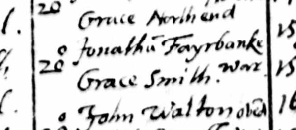 l. 20 Grace Northend 15
Jonathā Fayrbanke
20 Grace Smith. war 15
l. John Walton obed 16